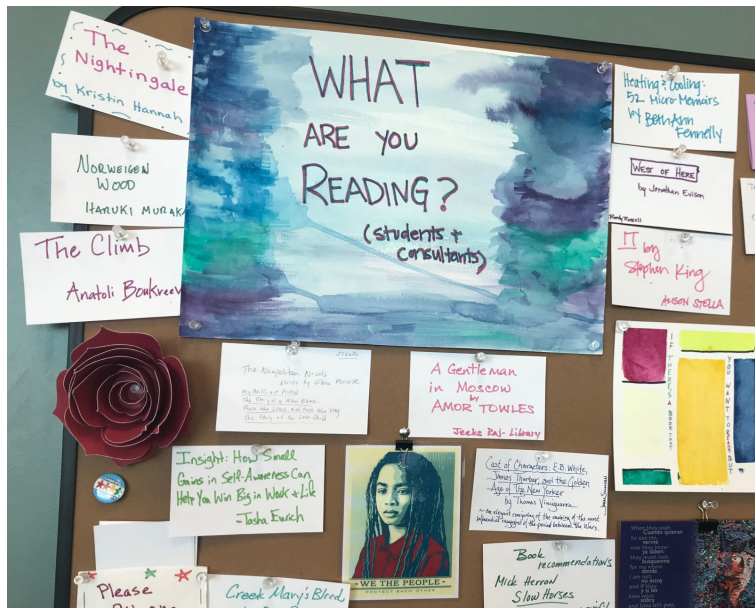 The
Nightingale
by Kristin Hannah
NORWEIGEN
WOOD
HARUKI MURAKA
The Climb
Anatoli Boukreev
WHAT
ARE YOU
READING?
(students +
consultants)
Heating & Cooling:
52 Micro-Memoirs
by Beth Ann
Fennelly
WEST OF HERE
by Jonathan Evison
Randy Russell
IT by
Stephen King
ALISON STELLA
The Neapolitan Novels
series by Elena Ferrante
My Brilliant Friend
The Story of a New Name
Those Who Leave and Those Who Stay
The Story of the Lost Child
A Gentleman
in Moscow
by
AMOR TOWLES
Jeeks Raj - Library
IF THERE'S A BOOK THAT
YOU WANT TO READ BUT
Insight: How Small
Gains in Self-Awareness Can
Help You Win Big in Work + Life
- Tasha Eurich
WE THE PEOPLE
PROTECT EACH OTHER
Cast of Characters: E.B. White,
James Thurber, and the Golden
Age of The New Yorker
by Thomas Vinciguerra
~ an elegant conjuring of the making of the most
influential magazine of the period between the Wars.
Book
recommendations
Mick Herron
Slow Horses
Please
Creek Mary's Blood
When they wish
Cuando quieran
to see me,
verme
now they know
ya saben
they must look
búsquenme
for my where
donde
I am not,
no estoy
and if they
y si les